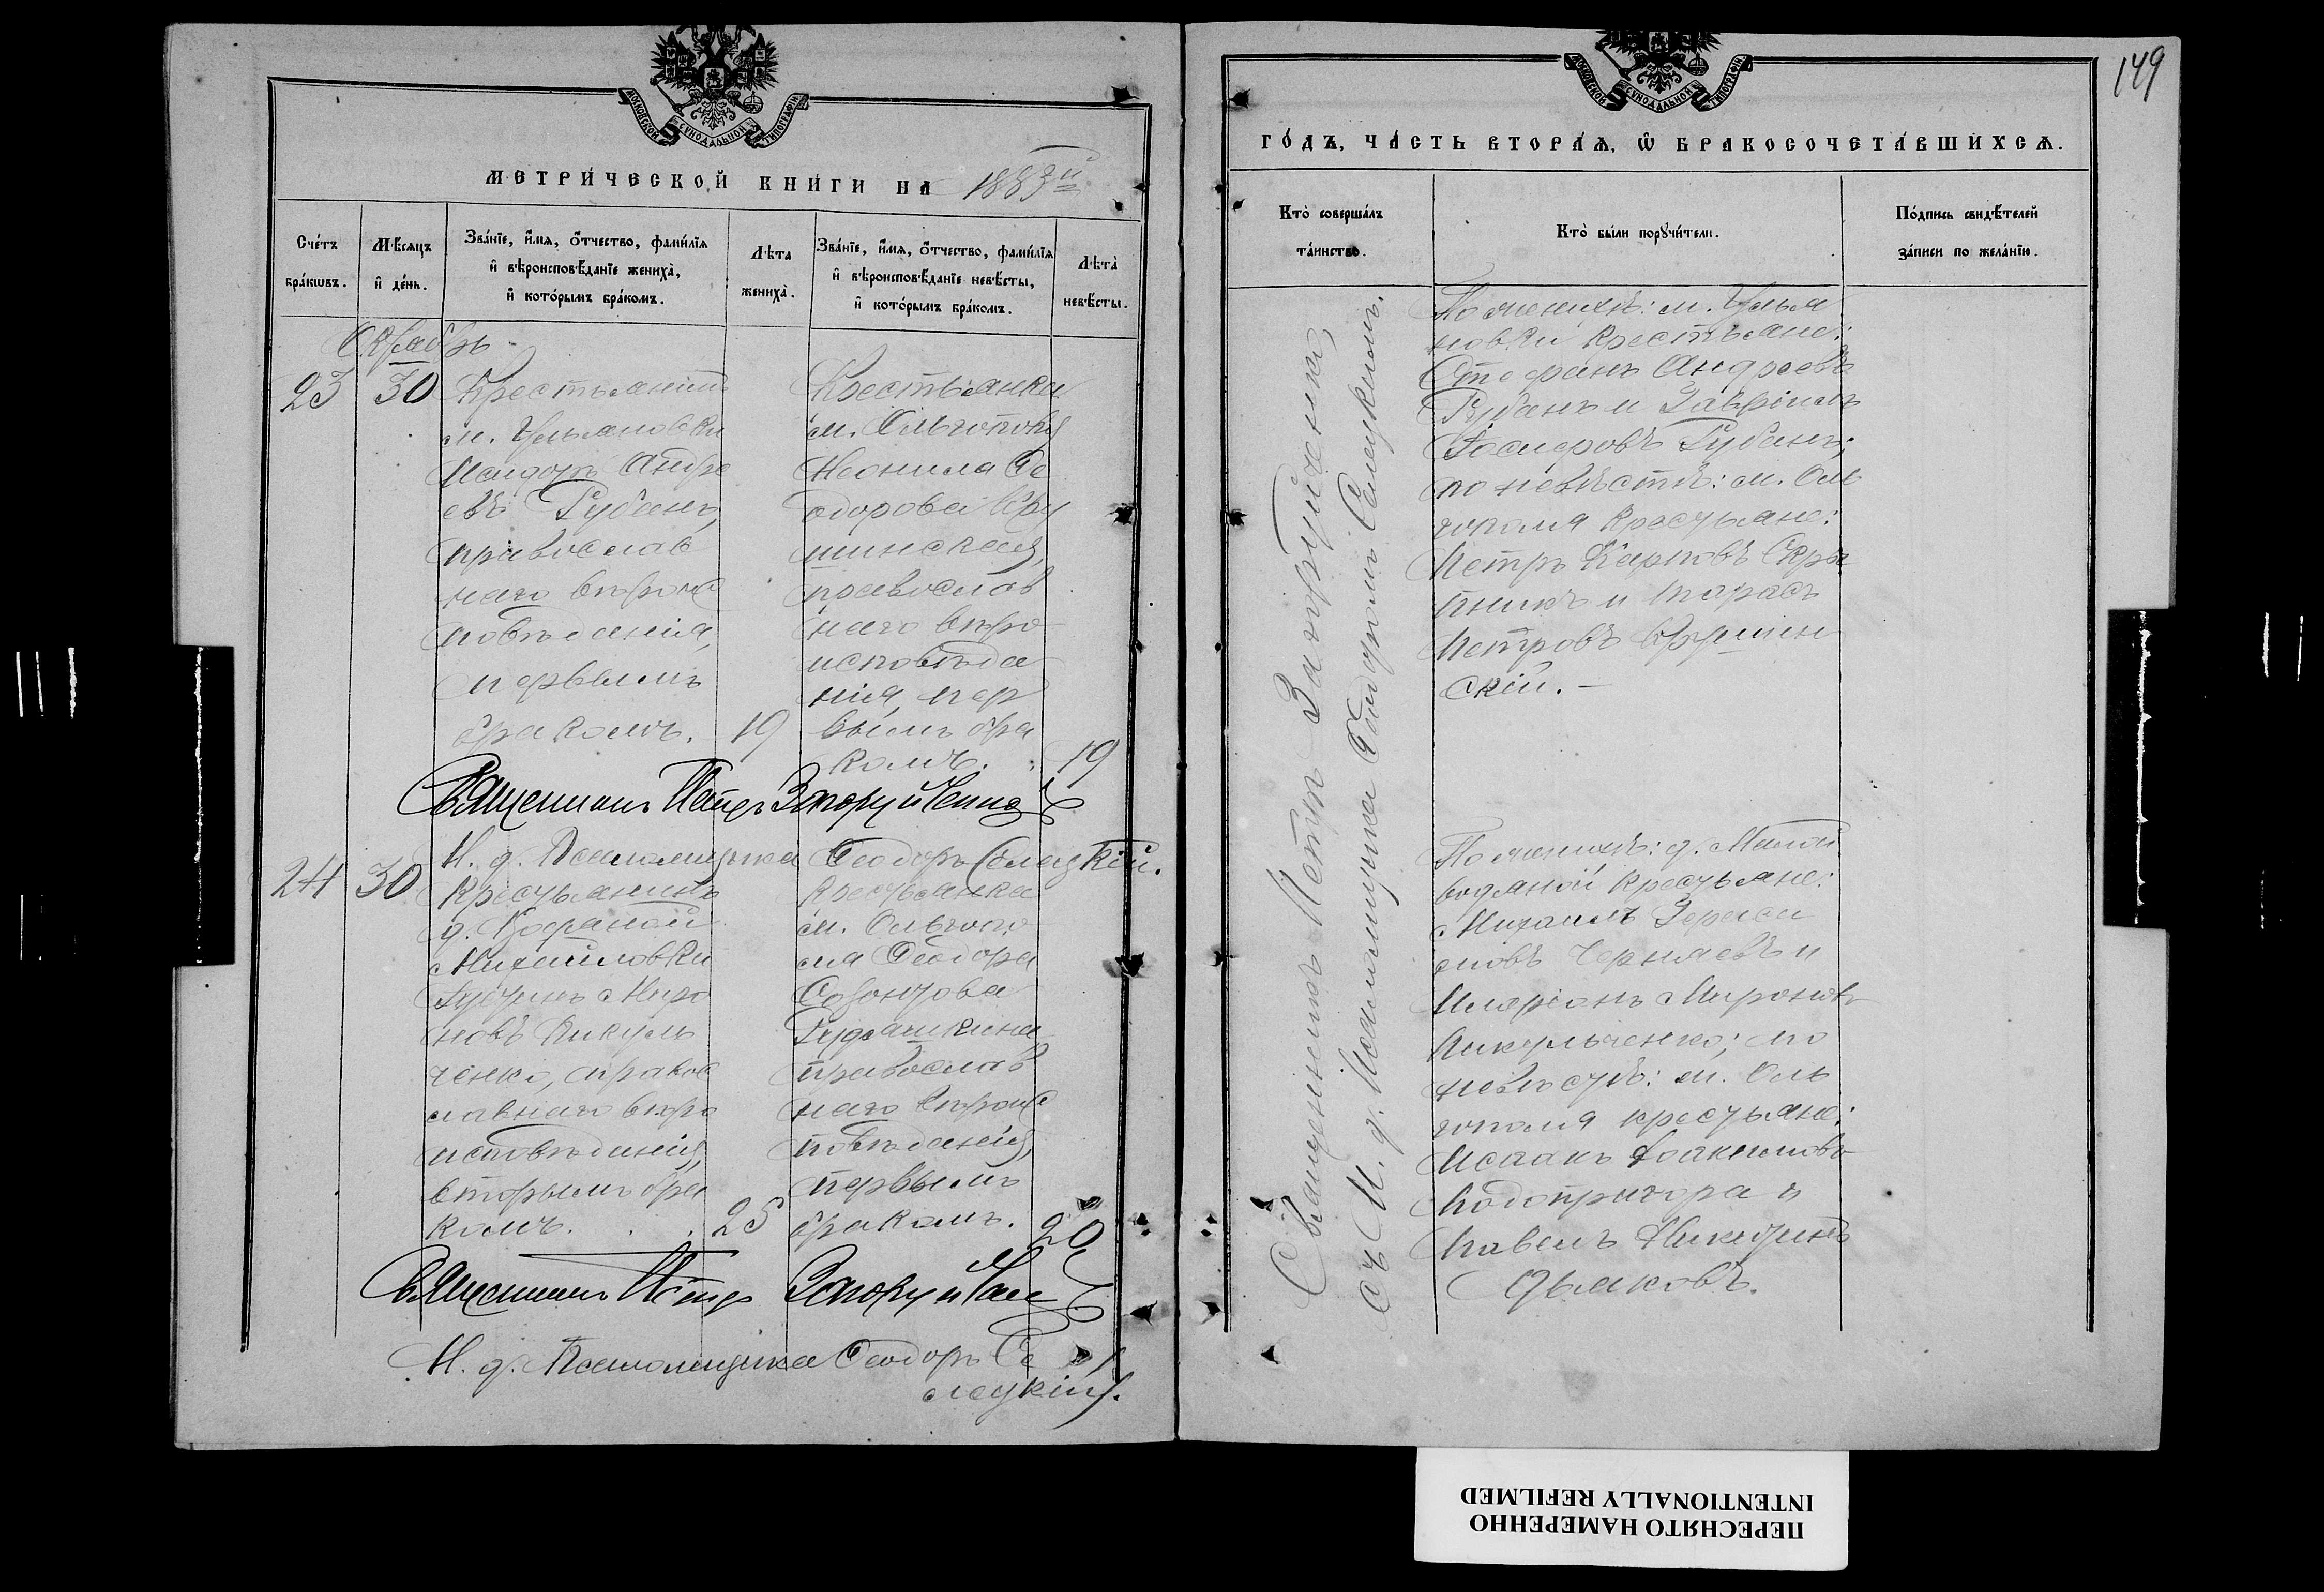 149
МОСКОВСКОЙ СѴНОДАЛЬНОЙ ТИПОГРАФІИ
МЕТРИ́ЧЕСКОЙ КНИ́ГИ НА 1883й
Сче́тъ бра́ковъ.
Мѣ́сяцъ и҆ де́нь.
Зва́нїе, и҆́мя, ѻ҆́тчество, фами́лїя и҆ вѣроисповѣ́данїе жениха̀, и҆ кото́рымъ бра́комъ.
Лѣ́та жениха̀.
Зва́нїе, и҆́мя, ѻ҆́тчество, фами́лїя и҆ вѣроисповѣ́данїе невѣ́сты, и҆ кото́рымъ бра́комъ.
Лѣ́та невѣ́сты.
Октябрь
23
30
Крестьянинъ
м. Ульяновки
Исидоръ Андре
евъ Губань,
православ
наго вѣроис
повѣданія,
первымъ
бракомъ.
19
Крестьянка
м. Ольгополя
Неонила Ѳе
одорова
шинская,
православ
наго вѣро
исповѣда
нія, пер
вымъ бра
комъ.
19
Священникъ Петръ Загоруйченко
И. д. Псаломщика Ѳеодоръ Селецкій.
24
30
Крестьянинъ
д.
Михайловки
Миро
новъ Пикуль
ченко, правос
лавнаго вѣро
исповѣданія,
вторымъ бра
комъ.
25
Крестьянка
м. Ольгопо
ля Ѳеодора
православ
наго вѣроис
повѣданія,
первымъ
бракомъ.
20
Священникъ Петръ Загоруйченко
И. д. Псаломщика Ѳеодоръ Се
лецкій.
МОСКОВСКОЙ СѴНОДАЛЬНОЙ ТИПОГРАФІИ
ГО́ДЪ, ЧА́СТЬ ВТОРА́Я, Ѽ БРАКОСОЧЕТА́ВШИХСЯ.
Кто̀ соверша́лъ та́инство.
Кто̀ бы́ли порꙋчи́тели.
По́дпись свидѣ́телей за́писи по жела́нїю.
Священникъ Петръ Загоруйченко
съ И. д. Псаломщика Ѳеодоромъ Селецкимъ.
По женихѣ: м. Улья
новки крестьяне:
Стефанъ Андреевъ
Губань и Гавріилъ
Іосифовъ Губань;
по невѣстѣ: м. Оль
гополя крестьяне:
Петръ Карповъ Скры
пникъ и Тарасъ
Петровъ
скій.
По женихѣ: д. Малой
водяной крестьяне:
Михаилъ Гераси
мовъ Черняевъ и
Иларіонъ Мироновъ
Пикульченко; по
невѣстѣ: м. Оль
гополя крестьяне:
Исаакъ Іоакимовъ
Подопригора и
Павелъ Никитинъ
Дьяковъ.
ПЕРЕСНЯТО НАМЕРЕННО
INTENTIONALLY REFILMED